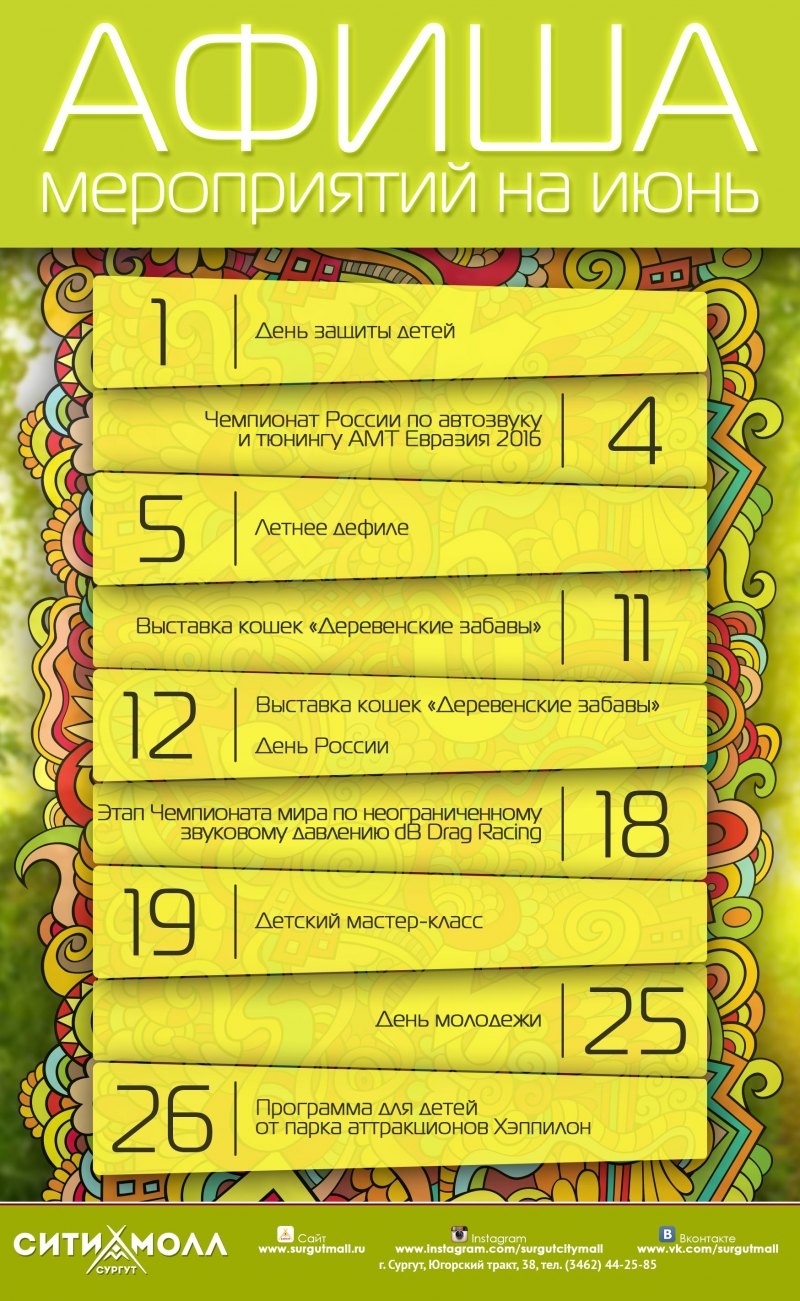 АФИША
мероприятий на июнь
1
День защиты детей
Чемпионат России по автозвуку
и тюнингу АМТ Евразия 2016
4
5
Летнее дефиле
Выставка кошек «Деревенские забавы»
11
12
Выставка кошек «Деревенские забавы»
День России
Этап Чемпионата мира по неограниченному
звуковому давлению dB Drag Racing
18
19
Детский мастер-класс
День молодежи
25
26
Программа для детей
от парка аттракционов Хэппилон
СИТИ МОЛЛ
СУРГУТ
Сайт
www.surgutmall.ru
Instagram
www.instagram.com/surgutcitymall
Вконтакте
www.vk.com/surgutmall
г. Сургут, Югорский тракт, 38, тел. (3462) 44-25-85